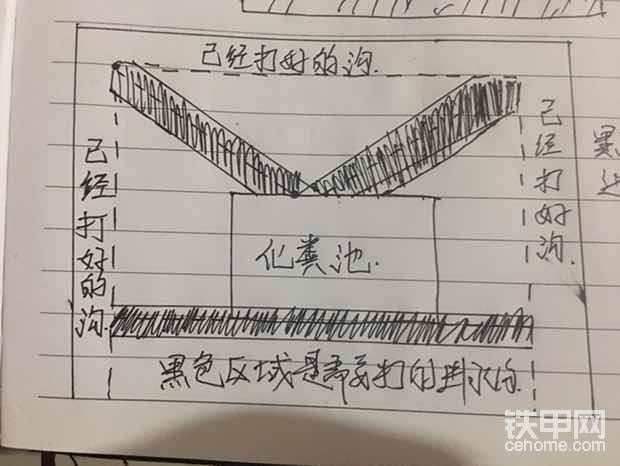 已经打好的沟.
已经打好的沟.
已经打好沟.
化粪池.
黑色区域是需要打的排水沟.
铁甲网
cehome.com